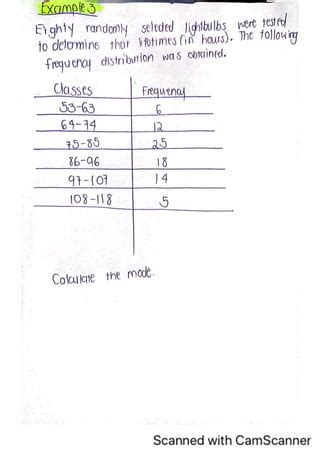 Example 3
Eighty randomly selected lightbulbs were tested
to determine their lifetimes (in hours). The following
frequency distribution was obtained.
Classes Frequency
53-63 6
64-74 12
75-85 25
86-96 18
97-107 14
108-118 5
Calculate the mode.
Scanned with CamScanner